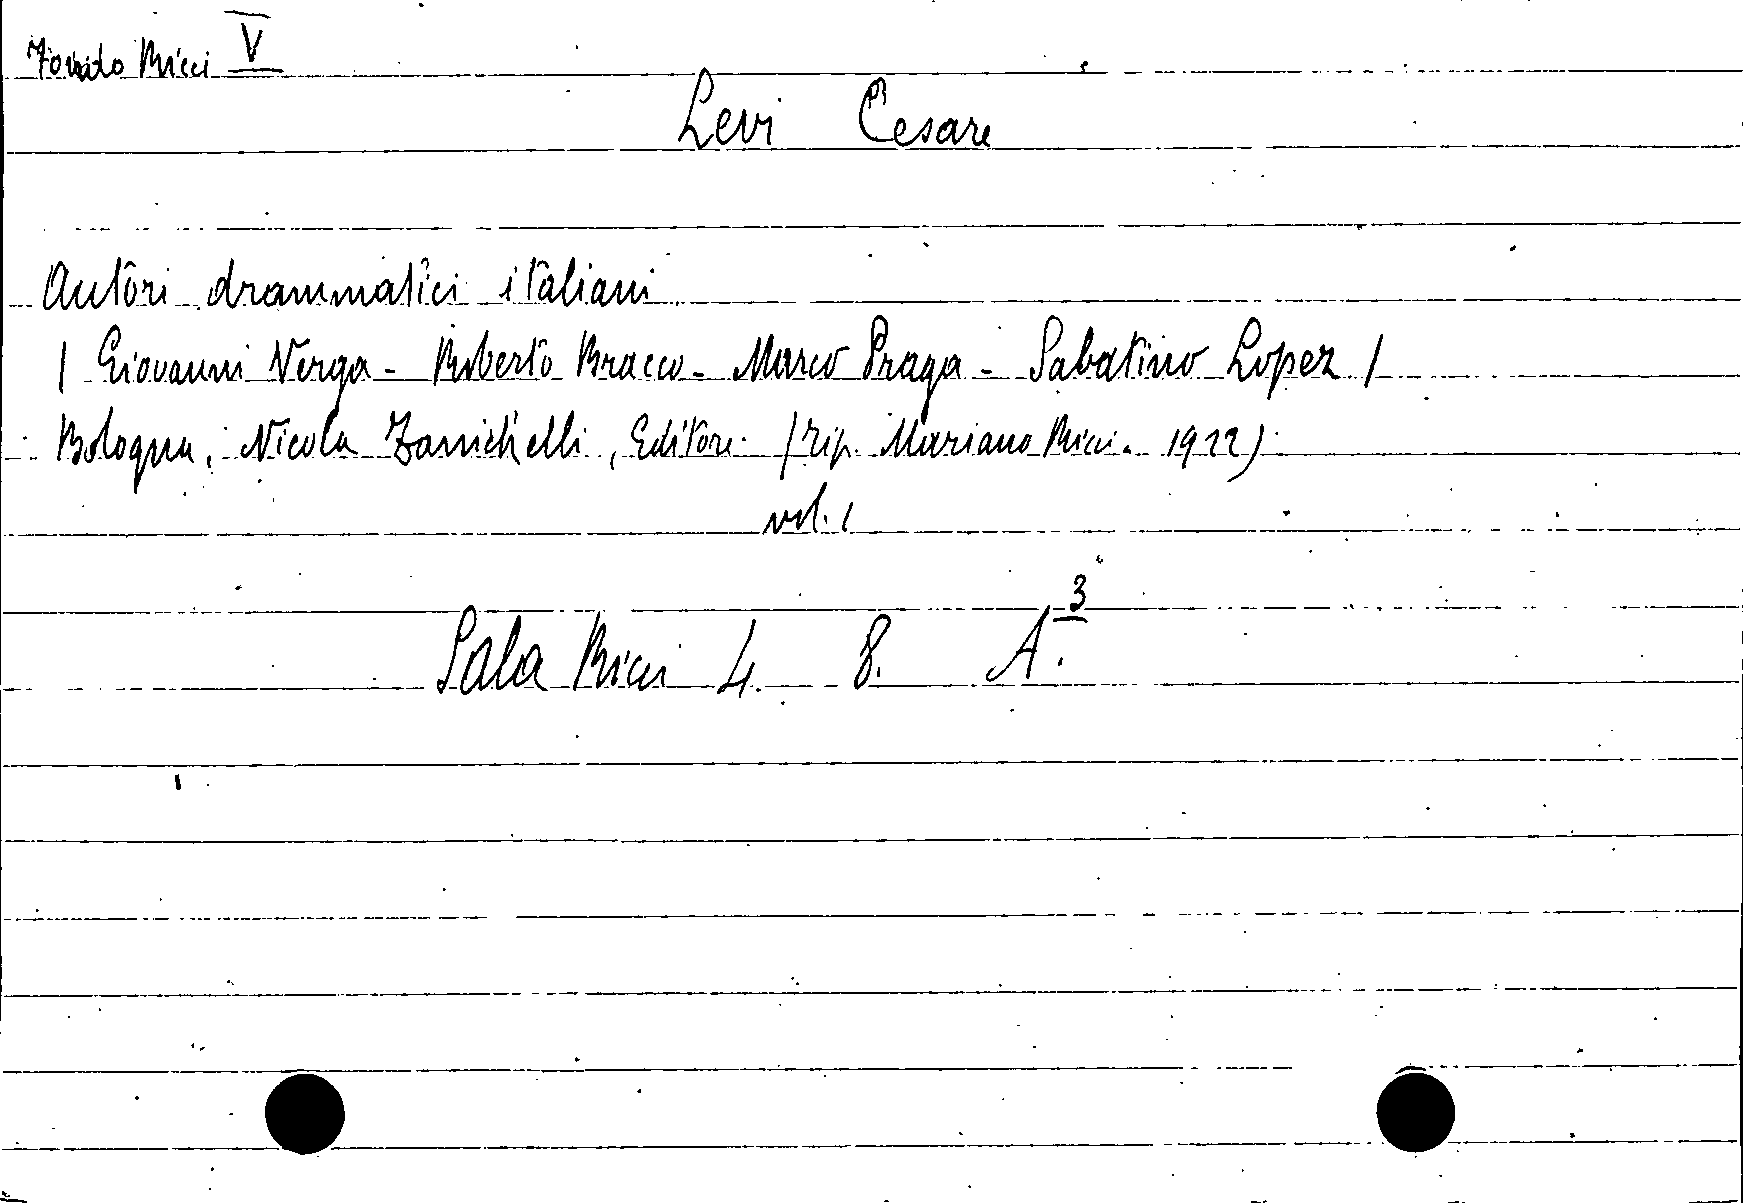 Ricci V
Levi Cesare
Autori drammatici italiani
/ Giovanni Verga - Roberto Bracco - Marco Praga - Sabatino Lopez /
Bologna, Nicola Zanichelli, Editore (tip. Mariano Ricci. 1922)
vol. 1
Sala Ricci 4. 8. A.3